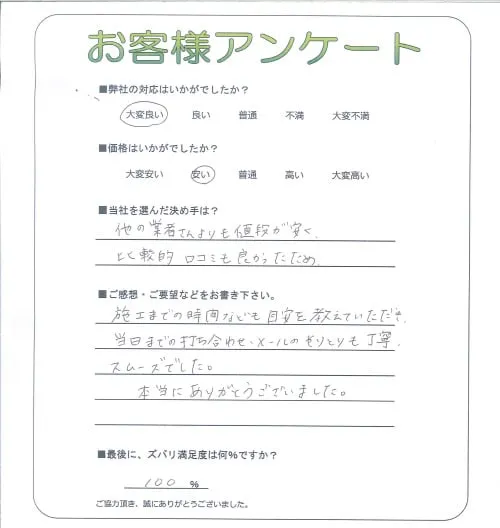 お客様アンケート
■弊社の対応はいかがでしたか?
大変良い 良い 普通 不満 大変不満
■価格はいかがでしたか?
大変安い 安い 普通 高い 大変高い
■当社を選んだ決め手は?
他の業者さんよりも値段が安く、
比較的 口コミも良かったため
■ご感想・ご要望などをお書き下さい。
施工までの時間なども目安を教えていただき、
当日までの打ち合わせ・メールのやりとりも丁寧、
スムーズでした。
本当にありがとうございました。
■最後に、ズバリ満足度は何%ですか?
100 %
ご協力頂き、誠にありがとうございました。